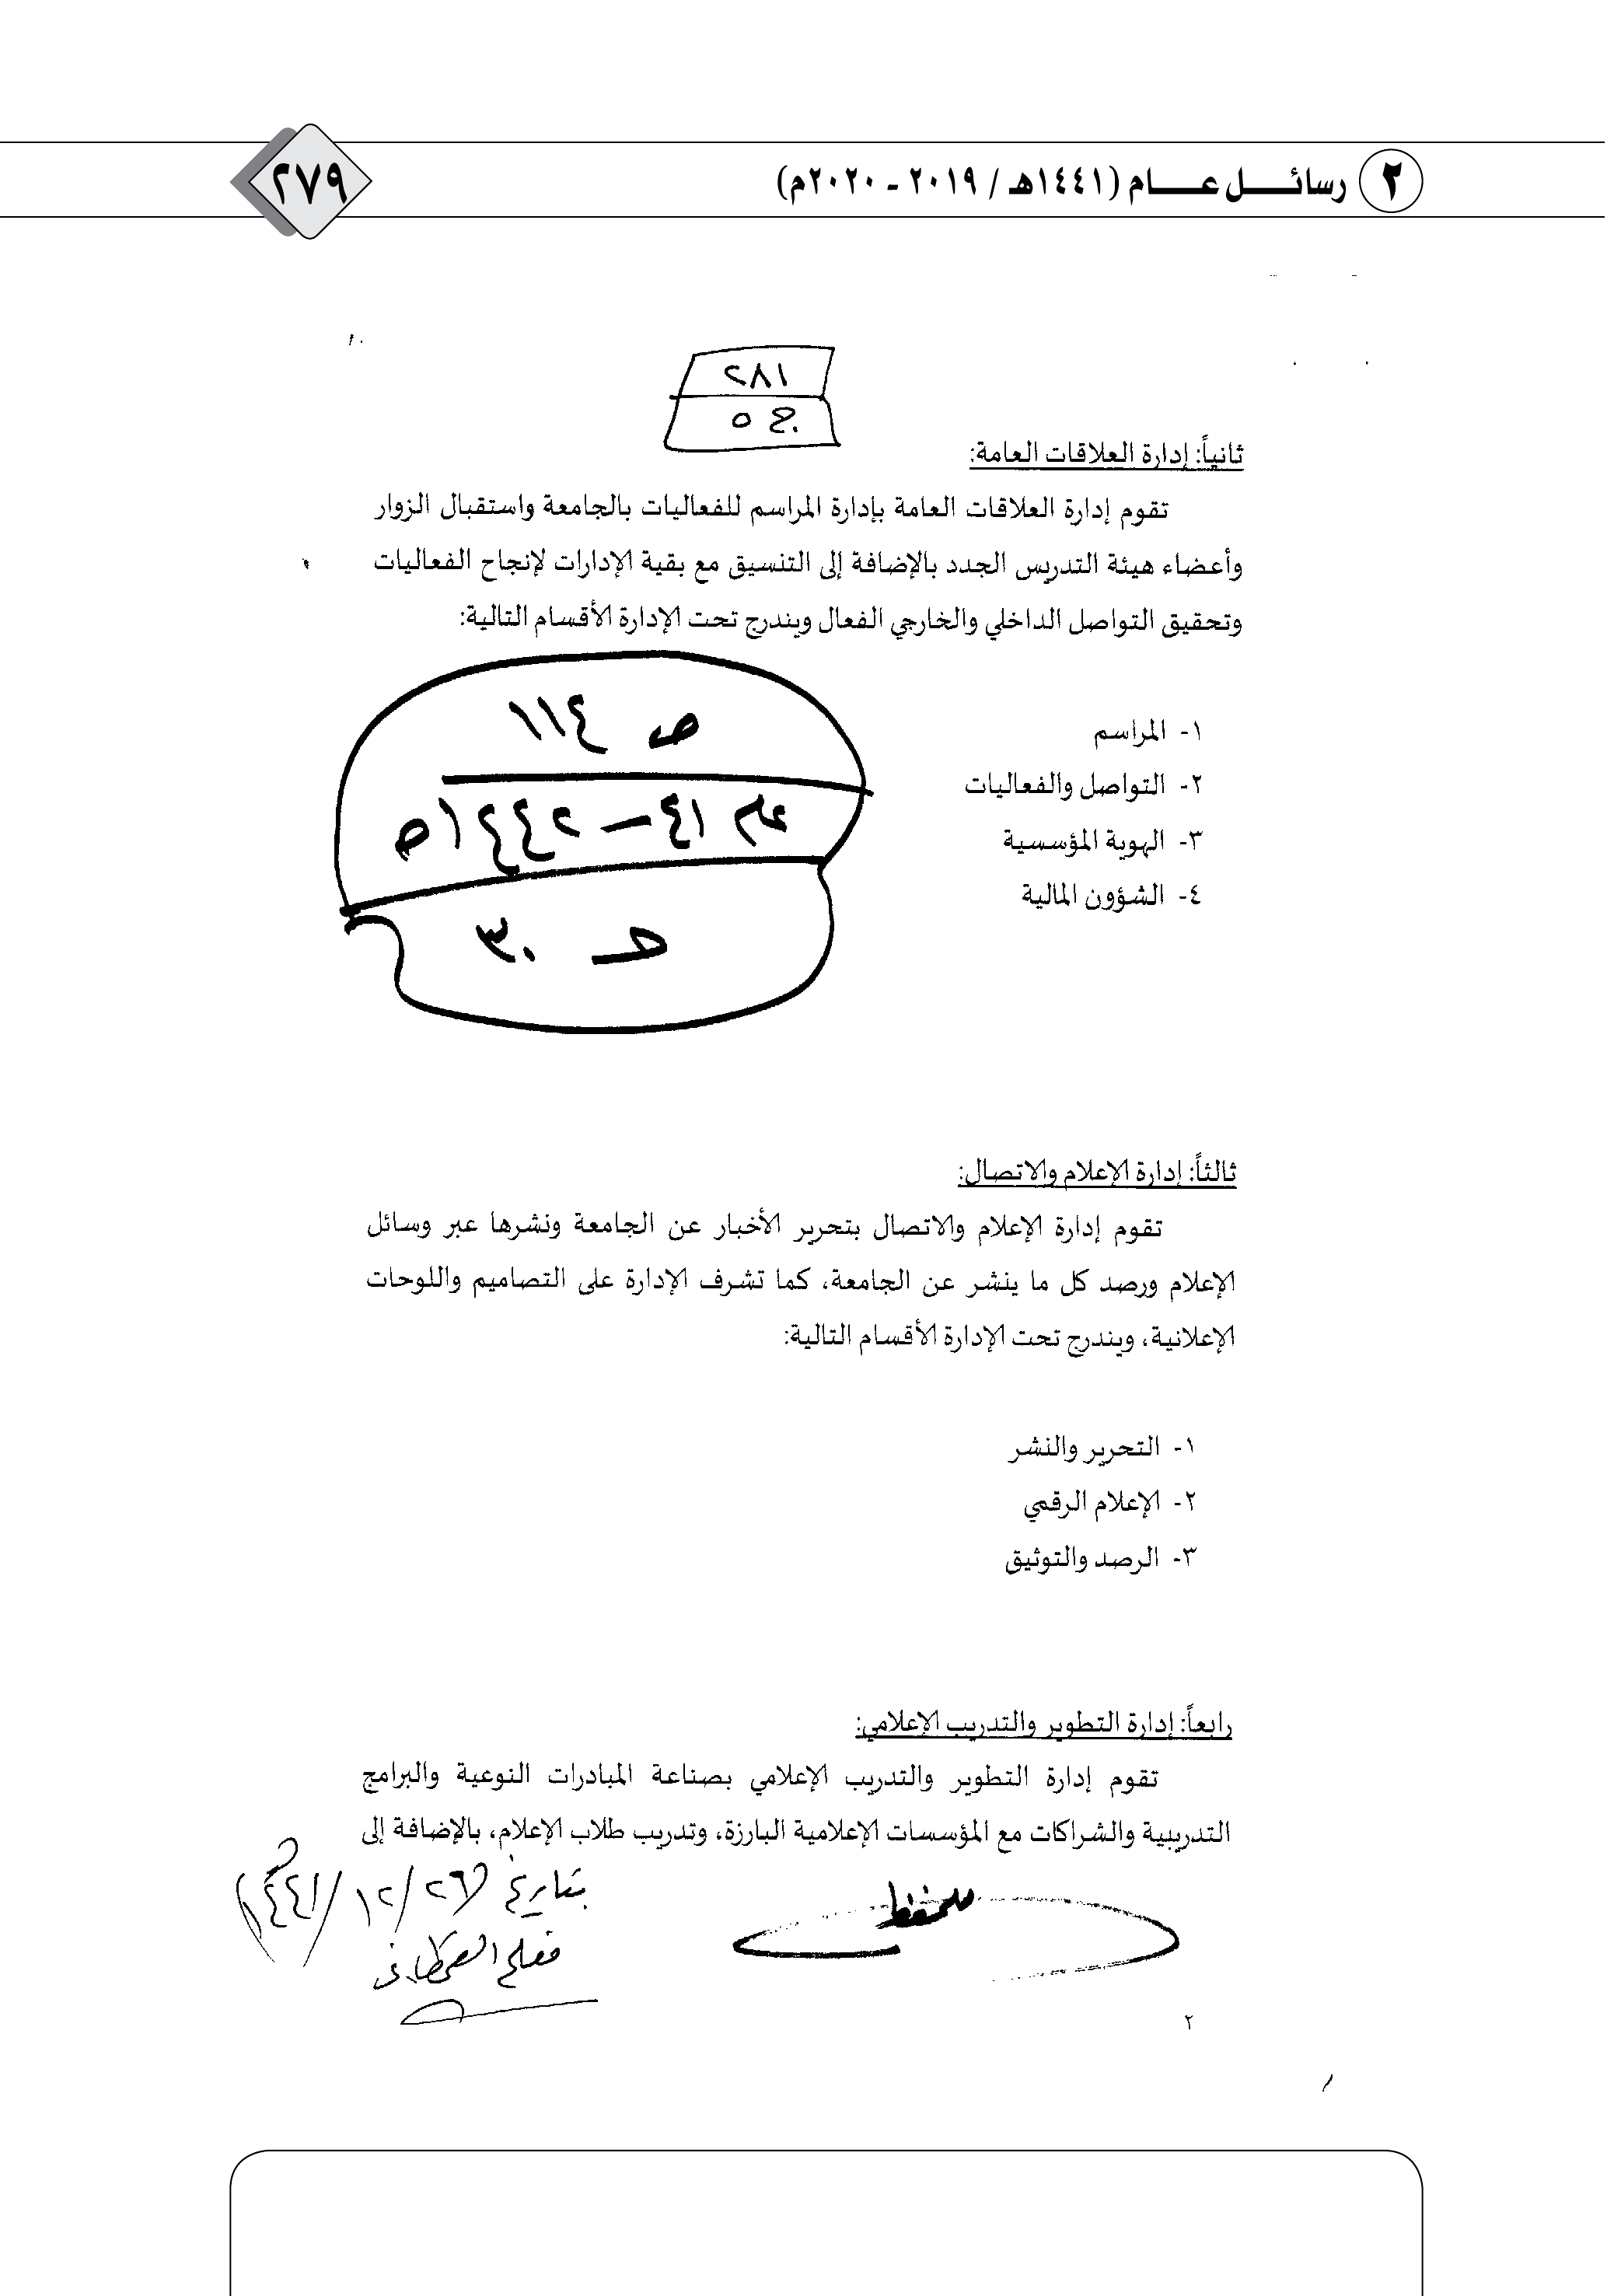 ٢ رسائل عام (١٤٤١هـ / ٢٠١٩ - ٢٠٢٠م)
٢٧٩
٢٨١
ج ٥
ثانياً: إدارة العلاقات العامة:
تقوم إدارة العلاقات العامة بإدارة المراسم للفعاليات بالجامعة واستقبال الزوار
وأعضاء هيئة التدريس الجدد بالإضافة إلى التنسيق مع بقية الإدارات لإنجاح الفعاليات
وتحقيق التواصل الداخلي والخارجي الفعال ويندرج تحت الإدارة الأقسام التالية:
ص ١١٤
عام ٤١ – ١٤٤٢هـ
حـ ٣٠
١- المراسم
٢- التواصل والفعاليات
٣- الهوية المؤسسية
٤- الشؤون المالية
ثالثاً: إدارة الإعلام والاتصال:
تقوم إدارة الإعلام والاتصال بتحرير الأخبار عن الجامعة ونشرها عبر وسائل
الإعلام ورصد كل ما ينشر عن الجامعة، كما تشرف الإدارة على التصاميم واللوحات
الإعلانية، ويندرج تحت الإدارة الأقسام التالية:
١- التحرير والنشر
٢- الإعلام الرقمي
٣- الرصد والتوثيق
رابعاً: إدارة التطوير والتدريب الإعلامي:
تقوم إدارة التطوير والتدريب الإعلامي بصناعة المبادرات النوعية والبرامج
التدريبية والشراكات مع المؤسسات الإعلامية البارزة، وتدريب طلاب الإعلام، بالإضافة إلى
بتاريخ ٢٦/١٢/١٤٤١
للحفظ
٢